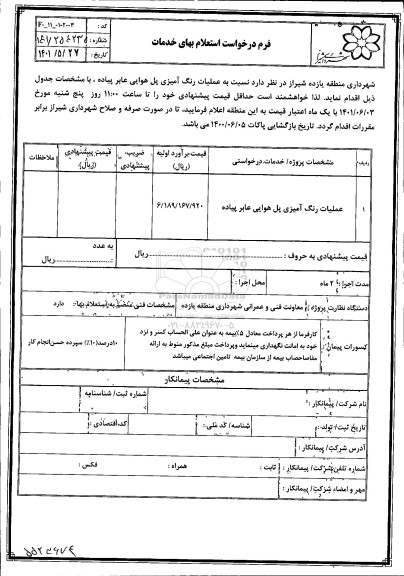 فرم درخواست استعلام بهای خدمات
کد :
شماره :
تاریخ : ۱۴۰۱/۵/۲۷
شهرداری منطقه یازده شیراز در نظر دارد نسبت به عملیات رنگ آمیزی پل هوایی عابر پیاده ، با مشخصات جدول
ذیل اقدام نماید. لذا خواهشمند است حداقل قیمت پیشنهادی خود را تا ساعت ۱۱:۰۰ روز پنج شنبه مورخ
۱۴۰۱/۰۶/۰۳ با یک ماه اعتبار قیمت به این منطقه اعلام فرمایید، تا در صورت صرفه و صلاح شهرداری شیراز برابر
مقررات اقدام گردد. تاریخ بازگشایی پاکات ۱۴۰۰/۰۶/۰۵ می باشد.
ردیف مشخصات پروژه/ خدمات درخواستی قیمت برآورد اولیه (ریال) ضریب پیشنهادی قیمت پیشنهادی (ریال) ملاحظات
۱ عملیات رنگ آمیزی پل هوایی عابر پیاده ۶/۱۸۹/۱۶۷/۹۲۰
قیمت پیشنهادی به حروف : ............ ریال به عدد : ............ ریال
مدت اجرا : ۲ ماه محل اجرا :
دستگاه نظارت پروژه : معاونت فنی و عمرانی شهرداری منطقه یازده مشخصات فنی منضم به استعلام بها : دارد
کسورات پیمان : کارفرما از هر پرداخت معادل ۵٪ بیمه به عنوان علی الحساب کسر و نزد
خود به امانت نگهداری مینماید وپرداخت مبلغ مذکور منوط به ارائه
مفاصاحساب بیمه از سازمان بیمه تامین اجتماعی میباشد
۱۰درصد(۱۰٪) سپرده حسن انجام کار
مشخصات پیمانکار
نام شرکت/ پیمانکار : شماره ثبت/ شناسنامه :
تاریخ ثبت/ تولد : شناسه/ کد ملی : کد اقتصادی :
آدرس شرکت/ پیمانکار :
شماره تلفن شرکت/ پیمانکار : ثابت : همراه : فکس :
مهر و امضاء شرکت/ پیمانکار :